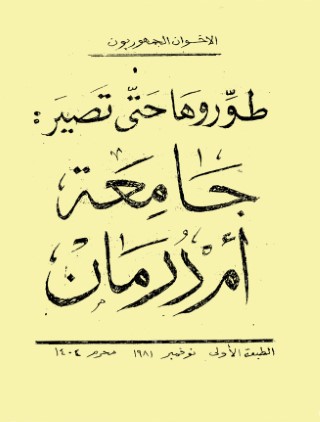 الاخوان الجمهوريون
طوّروها حتّى تصير:
جامعة
أم درمان
الطبعة الأولى نوفمبر ١٩٨١ محرم ١٤٠٢